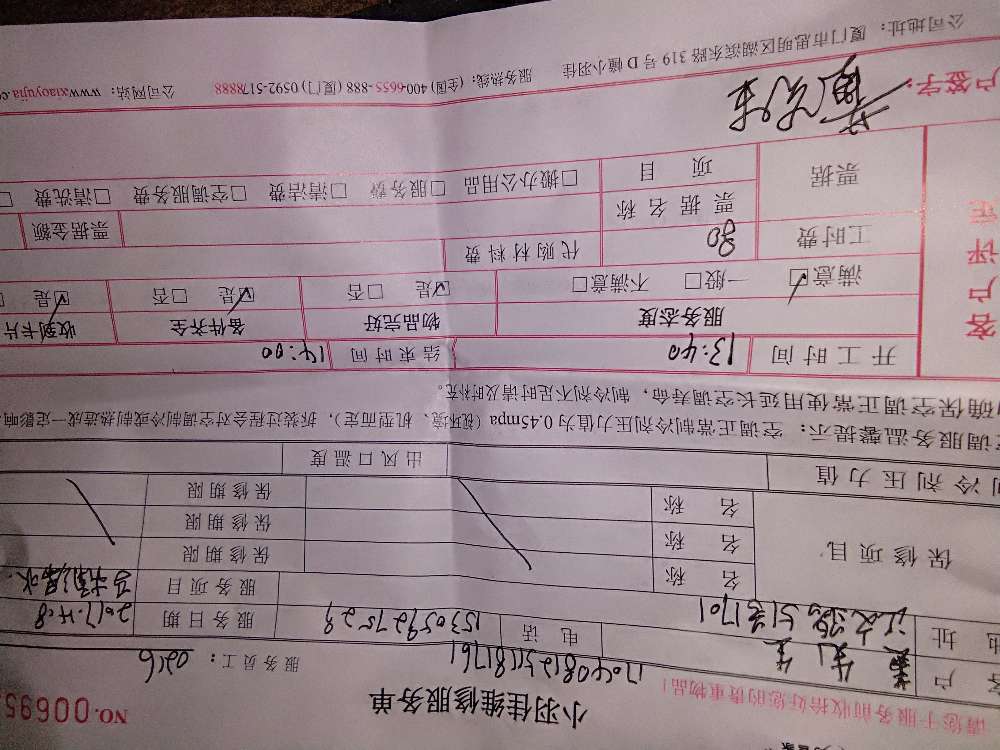 小羽佳维修服务单
NO.00695
请您于服务前收拾好您的贵重物品！
服务员工：0216
客户 黄先生 1704081251181761
地址 51号1701 电话 15305927529 服务日期 2017.4.8
服务项目
保修项目 名称 保修期限
名称 保修期限
名称 保修期限
制冷剂压力值 出风口温度
空调服务温馨提示：空调正常制冷剂压力值为0.45mpa（视环境、机型而定），拆装过程会对空调制冷或制热造成一定影响
确保空调正常使用延长空调寿命，制冷剂不足时请及时补充。
客户评定
开工时间 13:40 结束时间 14:00
服务态度 物品完好 备件齐全 收到卡片
☑满意 □一般 □不满意 ☑是 □否 ☑是 □否 ☑是
工时费 80 代购材料费
票据 票据名称 票据金额
项目 □搬办公用品 □服务费 □清洁费 □空调服务费 □清洗费
户签字：黄先生
公司地址：厦门市思明区湖滨东路319号D幢小羽佳 服务热线：(全国)400-6655-888 (厦门) 0592-5178888 公司网站：www.xiaoyujia.co